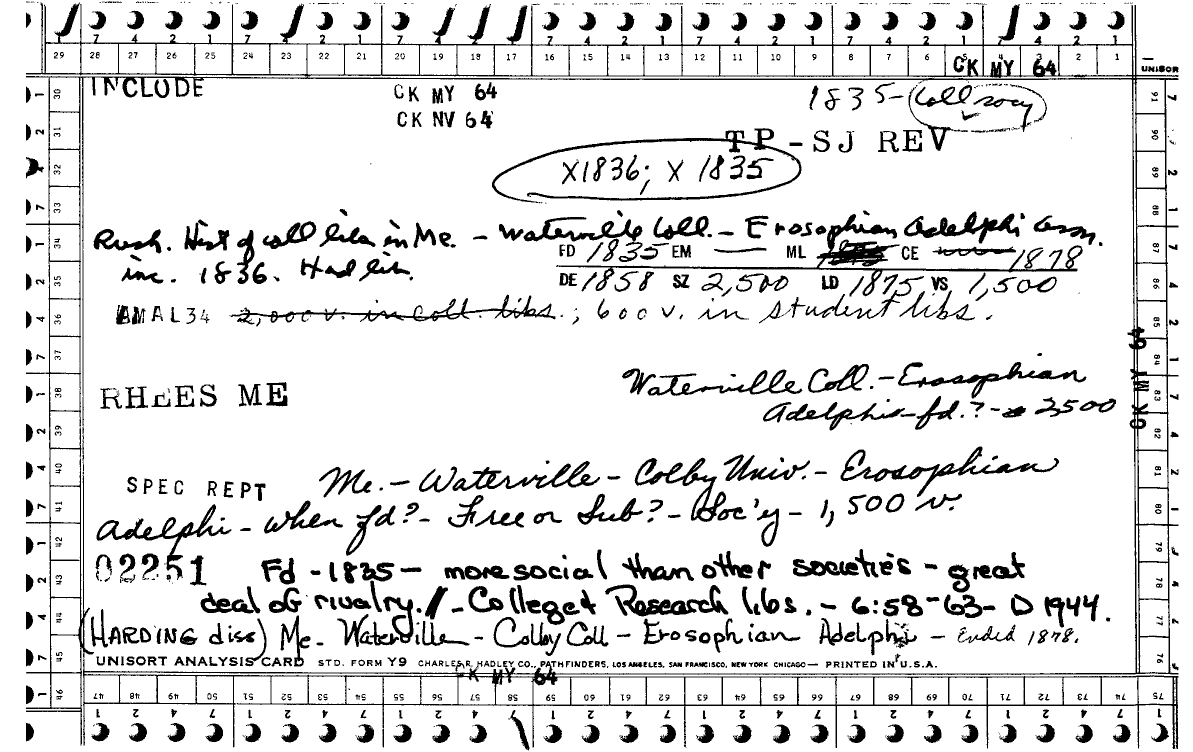 7 4 2 1 7 4 2 1 7 4 2 1 7 4 2 1 7 4 2 1 7 4 2 1 7 4 2 1
29 28 26 25 24 23 22 21 20 19 18 17 16 15 14 13 12 11 10 9 8 7 6 2 1
CK MY 64
UNISOR
INCLUDE
CK MY 64
CK NV 64
1835- Coll socy
TP-SJ REV
X1836; X 1835
Rush. Hist of coll libs in Me. - Waterville Coll. - Erosophian Adelphi Assn.
inc. 1836. Had lib.
FD 1835 EM — ML CE 1878
DE 1858 SZ 2,500 LD 1875 VS 1,500
AMAL34 2,000 v. in coll. libs.; 600 v. in student libs.
RHEES ME
Waterville Coll.-Erosophian
Adelphi-fd.?- 2500
SPEC REPT Me.- Waterville - Colby Univ.- Erosophian
Adelphi - when fd? - Free or Sub? - Soc'y - 1,500 v.
02251 Fd - 1835 - more social than other societies - great
deal of rivalry. - College & Research libs. - 6:58-63- D 1944.
(HARDING diss) Me. Waterville - Colby Coll - Erosophian Adelphi - Ended 1878.
UNISORT ANALYSIS CARD STD. FORM Y9 CHARLES R. HADLEY CO., PATHFINDERS, LOS ANGELES, SAN FRANCISCO, NEW YORK CHICAGO — PRINTED IN U.S.A.
CK MY 64
47 48 49 50 51 52 53 54 55 56 57 58 59 60 61 62 63 64 65 66 67 68 69 70 71 72 73 74 75
1 2 4 7 1 2 4 7 1 2 4 7 1 2 4 7 1 2 4 7 1 2 4 7 1 2 4 7 1
30 31 32 33 34 35 36 37 38 39 40 41 42 43 44 45 46
91 90 89 88 87 86 85 84 83 82 81 80 79 78 77 76
CK MY 64